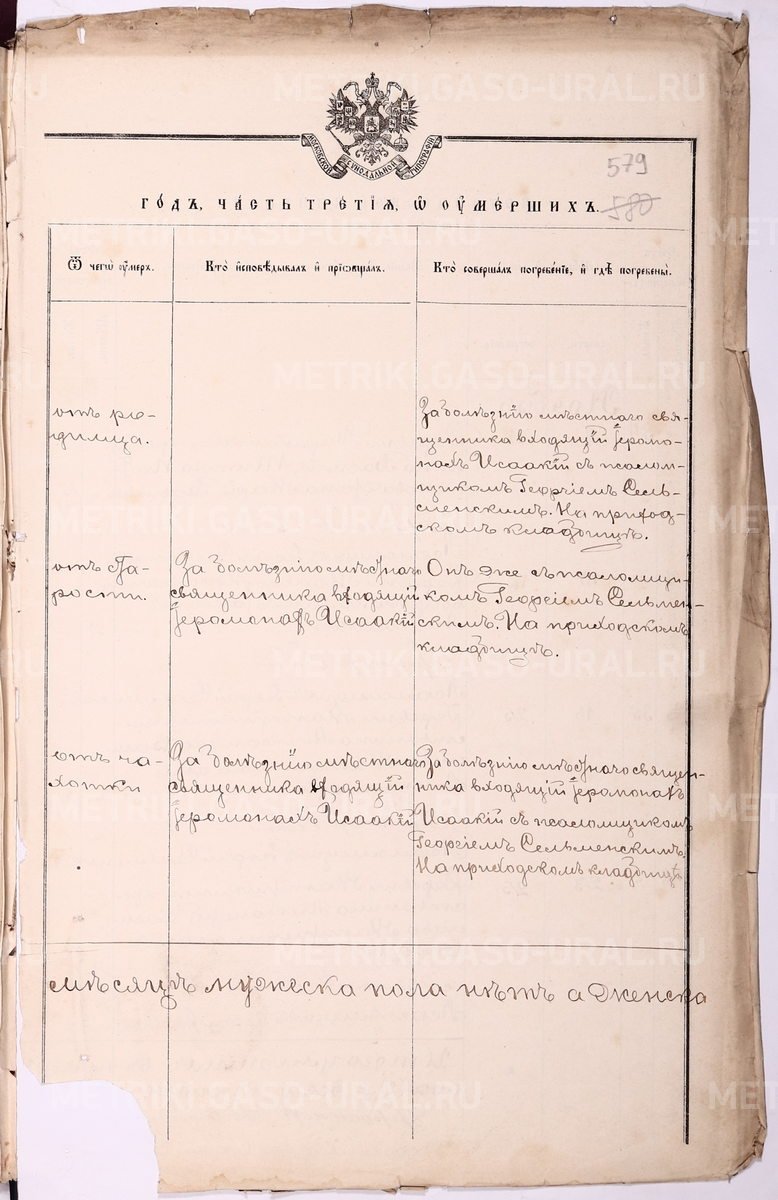 МОСКОВСКОЙ СУНОДАЛЬНОЙ ТИПОГРАФІИ
579
580
ГО́ДЪ, ЧА́СТЬ ТРЕ́ТІЯ, Ѡ ОУМЕ́РШИХЪ.
Ѿ чегѡ̀ оу́меръ.
Кто̀ и҆сповѣ́дывалъ и҆ прїѡбща́лъ.
Кто̀ соверша́лъ погребе́нїе, и҆ гдѣ̀ погребе́ны.
отъ ро-
димца.
За болѣзнію мѣстнаго свя-
щенника входящій Іеромо-
нахъ Исаакій съ псалом-
щикомъ Георгіемъ Сель-
менскимъ. На приход-
скомъ кладбищѣ.
отъ ста-
рости.
За болѣзнію мѣстнаго
священника входящій
Іеромонахъ Исаакій
Онъ же съ псаломщи-
комъ Георгіемъ Сельмен-
скимъ. На приходскомъ
кладбищѣ.
отъ ча-
хотки
За болѣзнію мѣстнаго
священника входящій
Іеромонахъ Исаакій
За болѣзнію мѣстнаго священ-
ника входящій Іеромонахъ
Исаакій съ псаломщикомъ
Георгіемъ Сельменскимъ.
На приходскомъ кладбищѣ
мѣсяцѣ мужеска пола нѣтъ а женска
METRIKI.GASO-URAL.RU